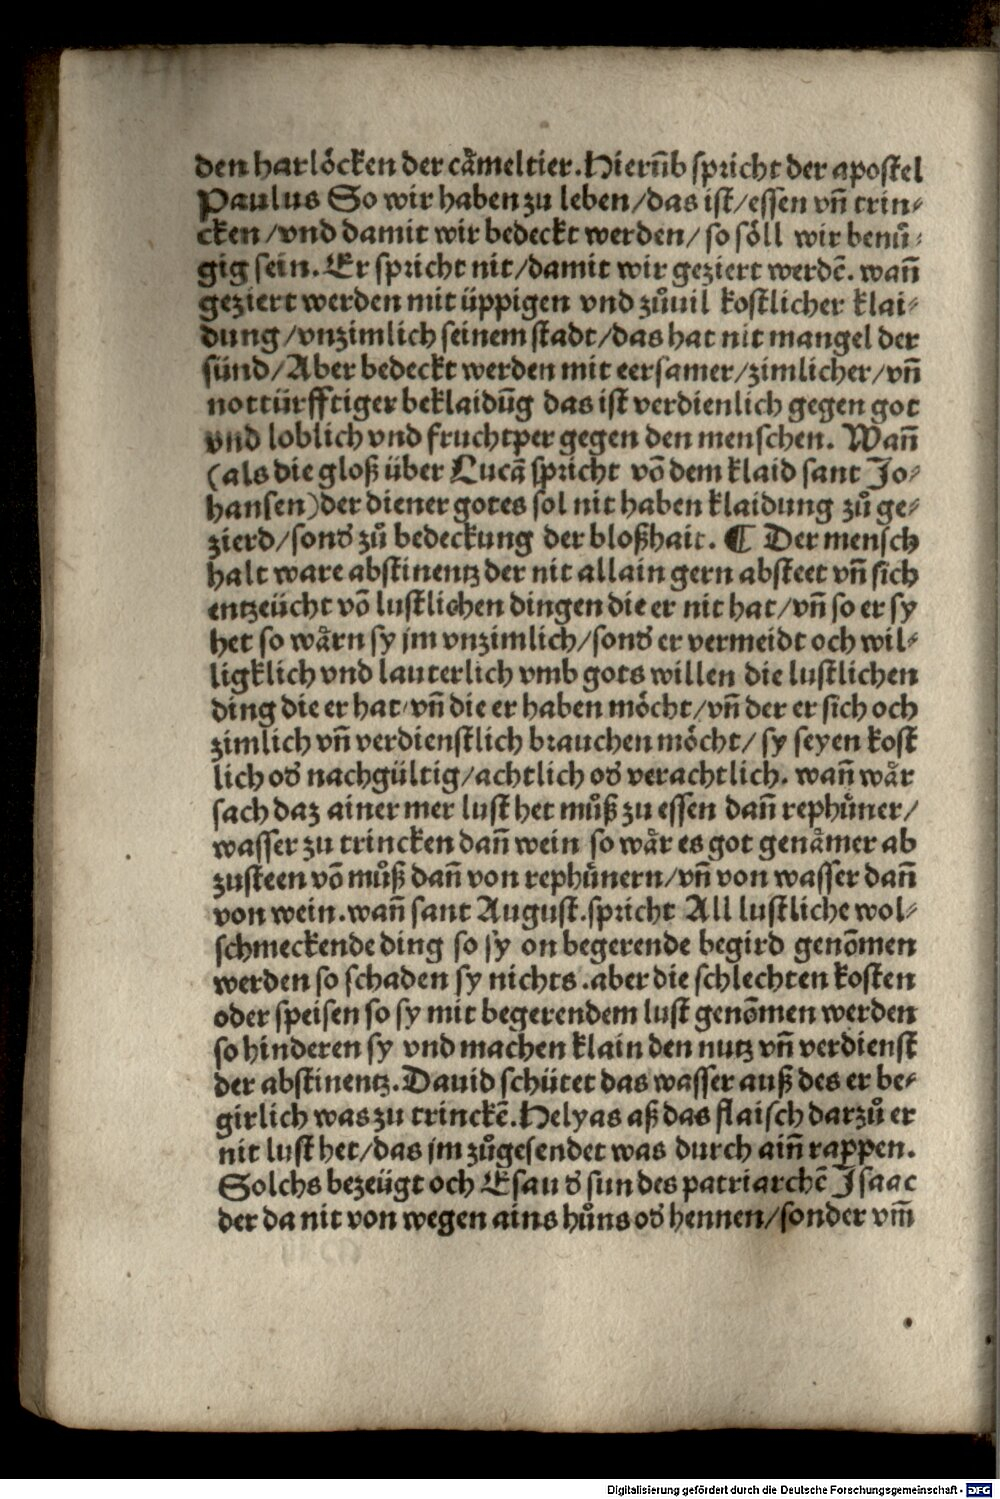 den harlöcken der cåmeltier. Hierūb spricht der apostel
Paulus So wir haben zu leben/das ist/essen vñ trin⸗
cken/vnd damit wir bedeckt werden/so söll wir benů⸗
gig sein. Er spricht nit/damit wir geziert werdē. wañ
geziert werden mit üppigen vnd zůuil kostlicher klai⸗
dung/vnzimlich seinem stadt/das hat nit mangel der
sünd/Aber bedeckt werden mit eersamer/zimlicher/vñ
nottürfftiger beklaidūg das ist verdienlich gegen got
vnd loblich vnd fruchtper gegen den menschen. Wañ
(als die gloß über Lucā spricht võ dem klaid sant Jo⸗
hansen) der diener gotes sol nit haben klaidung zů ge⸗
zierd/sonđ zů bedeckung der bloßhait. ¶ Der mensch
halt ware abstinentz der nit allain gern absteet vñ sich
entzeücht võ lustlichen dingen die er nit hat/vñ so er sy
het so wårn sy jm vnzimlich/sonđ er vermeidt och wil⸗
ligklich vnd lauterlich vmb gots willen die lustlichen
ding die er hat/vñ die er haben möcht/vñ der er sich och
zimlich vñ verdienstlich brauchen möcht/sy seyen kost
lich ođ nachgültig/achtlich ođ verachtlich. wañ wår
sach daz ainer mer lust het můß zu essen dañ rephůner/
wasser zu trincken dañ wein so wår es got genåmer ab
zusteen võ můß dañ von rephůnern/vñ von wasser dañ
von wein. wañ sant August. spricht All lustliche wol⸗
schmeckende ding so sy on begerende begird genōmen
werden so schaden sy nichts. aber die schlechten kosten
oder speisen so sy mit begerendem lust genōmen werden
so hinderen sy vnd machen klain den nutz vñ verdienst
der abstinentz. Dauid schütet das wasser auß des er be⸗
girlich was zu trinckē. Helyas aß das flaisch darzů er
nit lust het/das jm zůgesendet was durch aiñ rappen.
Solchs bezeügt och Esau đ sun des patriarchē Isaac
der da nit von wegen ains hůns ođ hennen/sonder vm̄
Digitalisierung gefördert durch die Deutsche Forschungsgemeinschaft - DFG